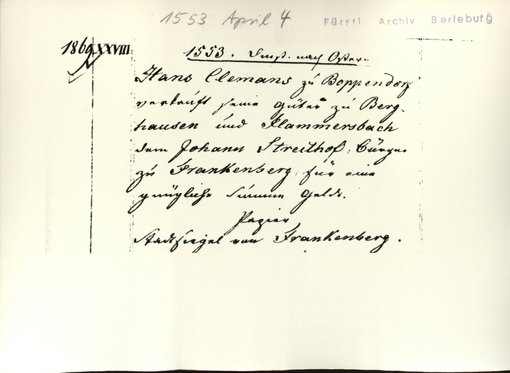 1553 April 4
Fürstl. Archiv Berleburg
1869 XXVIII
1553. Dinst. nach Ostern.
Hans Clemans zu Boppendorf
verkauft seine güter zu Berg-
hausen und Flammersbach
dem Johann Streithof, Bürger
zu Frankenberg, für eine
gnügliche Summe Gelds.
Papier
Stadtsiegel von Frankenberg.